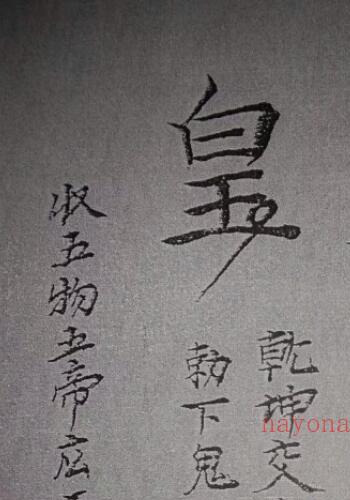 皇
乾坤交
勅下鬼
收五物五帝
nayona